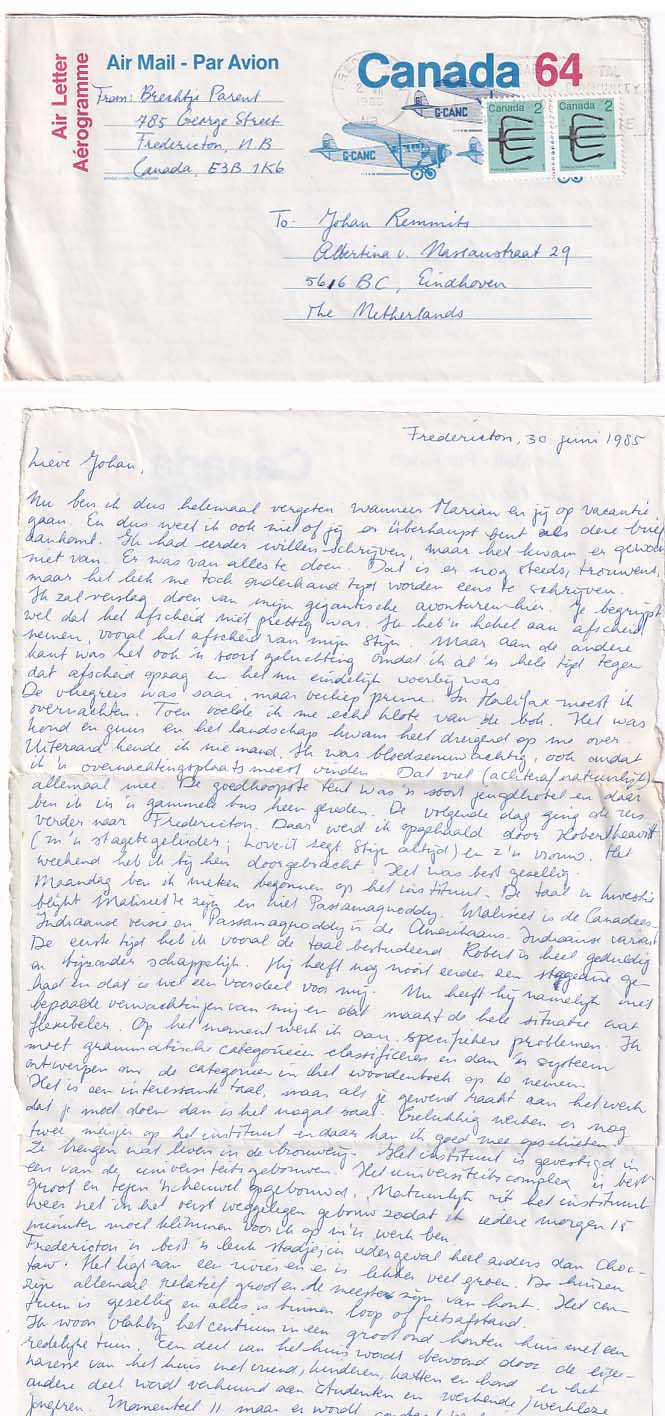 Air Letter
Aérogramme
Air Mail - Par Avion
Canada 64
G-CANC
G-CANC
Canada 2
Canada 2
From: Brechtje Parent
485 George Street
Fredericton, N.B
Canada, E3B 1K6
To: Johan Remmits
Albertina v. Nassaustraat 29
5616 BC, Eindhoven
The Netherlands
Fredericton, 30 juni 1985
Lieve Johan,
Nu ben ik dus helemaal vergeten wanneer Marian en jij op vacantie
gaan. En dus weet ik ook niet of jij er überhaupt bent als deze brief
aankomt. Ik had eerder willen schrijven, maar het kwam er gewoon
niet van. Er was van alles te doen. Dat is er nog steeds, trouwens,
maar het leek me toch onderhand tijd worden eens te schrijven.
Ik zal verslag doen van mijn gigantische avonturen hier. Je begrijpt
wel dat het afscheid niet prettig was. Ik heb 'n hekel aan afscheid
nemen, vooral het afscheid van mijn Stijn. Maar aan de andere
kant was het ook 'n soort opluchting omdat ik al 'n hele tijd tegen
dat afscheid opzag en het nu eindelijk voorbij was.
De vliegreis was saai, maar verliep prima. In Halifax moest ik
overnachten. Toen voelde ik me echt klote van de bok. Het was
koud en guur en het landschap kwam heel dreigend op me over.
Uiteraard kende ik niemand. Ik was bloedzenuwachtig, ook omdat
ik 'n overnachtingsplaats moest vinden. Dat viel (achteraf natuurlijk)
allemaal mee. De goedkoopste tent was 'n soort jeugdhotel en daar
ben ik in 'n gammele bus heen gereden. De volgende dag ging de reis
verder naar Fredericton. Daar werd ik opgehaald door Robert Leavitt
(m'n stagebegeleider; Love-it zegt Stijn altijd) en z'n vrouw. Het
weekend heb ik bij hen doorgebracht. Het was best gezellig.
Maandag ben ik meteen begonnen op het instituut. De taal in kwestie
blijkt Maliseet te zijn en niet Passamaquoddy. Maliseet is de Canadees-
Indiaanse versie en Passamaquoddy is de Amerikaans-Indiaanse variant.
De eerste tijd heb ik vooral de taal bestudeerd. Robert is heel geduldig
en bijzonder schappelijk. Hij heeft nog nooit eerder een stagiaire ge-
had en dat is wel een voordeel voor mij. Nu heeft hij namelijk niet
bepaalde verwachtingen van mij en dat maakt de hele situatie wat
flexibeler. Op het moment werk ik aan specifiekere problemen. Ik
moet grammatische categorieën classificeren en dan 'n systeem
ontwerpen om de categorieën in het woordenboek op te nemen.
Het is een interessante taal, maar als je gewend raakt aan het werk
dat je moet doen dan is het nogal saai. Gelukkig werken er nog
twee meisjes op het instituut en daar kan ik goed mee opschieten.
Ze brengen wat leven in de brouwerij. Het instituut is gevestigd in
een van de universiteitsgebouwen. Het universiteitscomplex is best
groot en tegen 'n heuvel opgebouwd. Natuurlijk zit het instituut
weer net in het verst weggelegen gebouw zodat ik iedere morgen 15
minuten moet klimmen voor ik op m'n werk ben.
Fredericton is best 'n leuk stadje, in iedergeval heel anders dan Choc-
taw. Het ligt aan een rivier en er is lekker veel groen. De huizen
zijn allemaal relatief groot en de meeste zijn van hout. Het cen-
trum is gezellig en alles is binnen loop of fietsafstand.
Ik woon vlakbij het centrum in een groot oud houten huis met een
redelijke tuin. Een deel van het huis wordt bewoond door de eige-
naresse van het huis met vriend, kinderen, katten en hond en het
andere deel wordt verhuurd aan studenten en werkende/werkloze
jongeren. Momenteel 11 maar er wordt